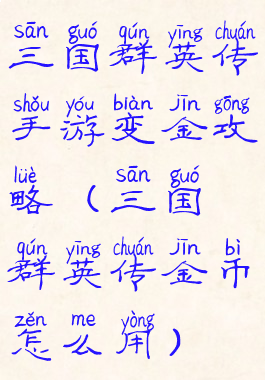 sān guó qún yīng chuán
三国群英传
shǒu yóu biàn jīn gōng
手游变金攻
lüè sān guó
略（三国
qún yīng chuán jīn bì
群英传金币
zěn me yòng
怎么用）